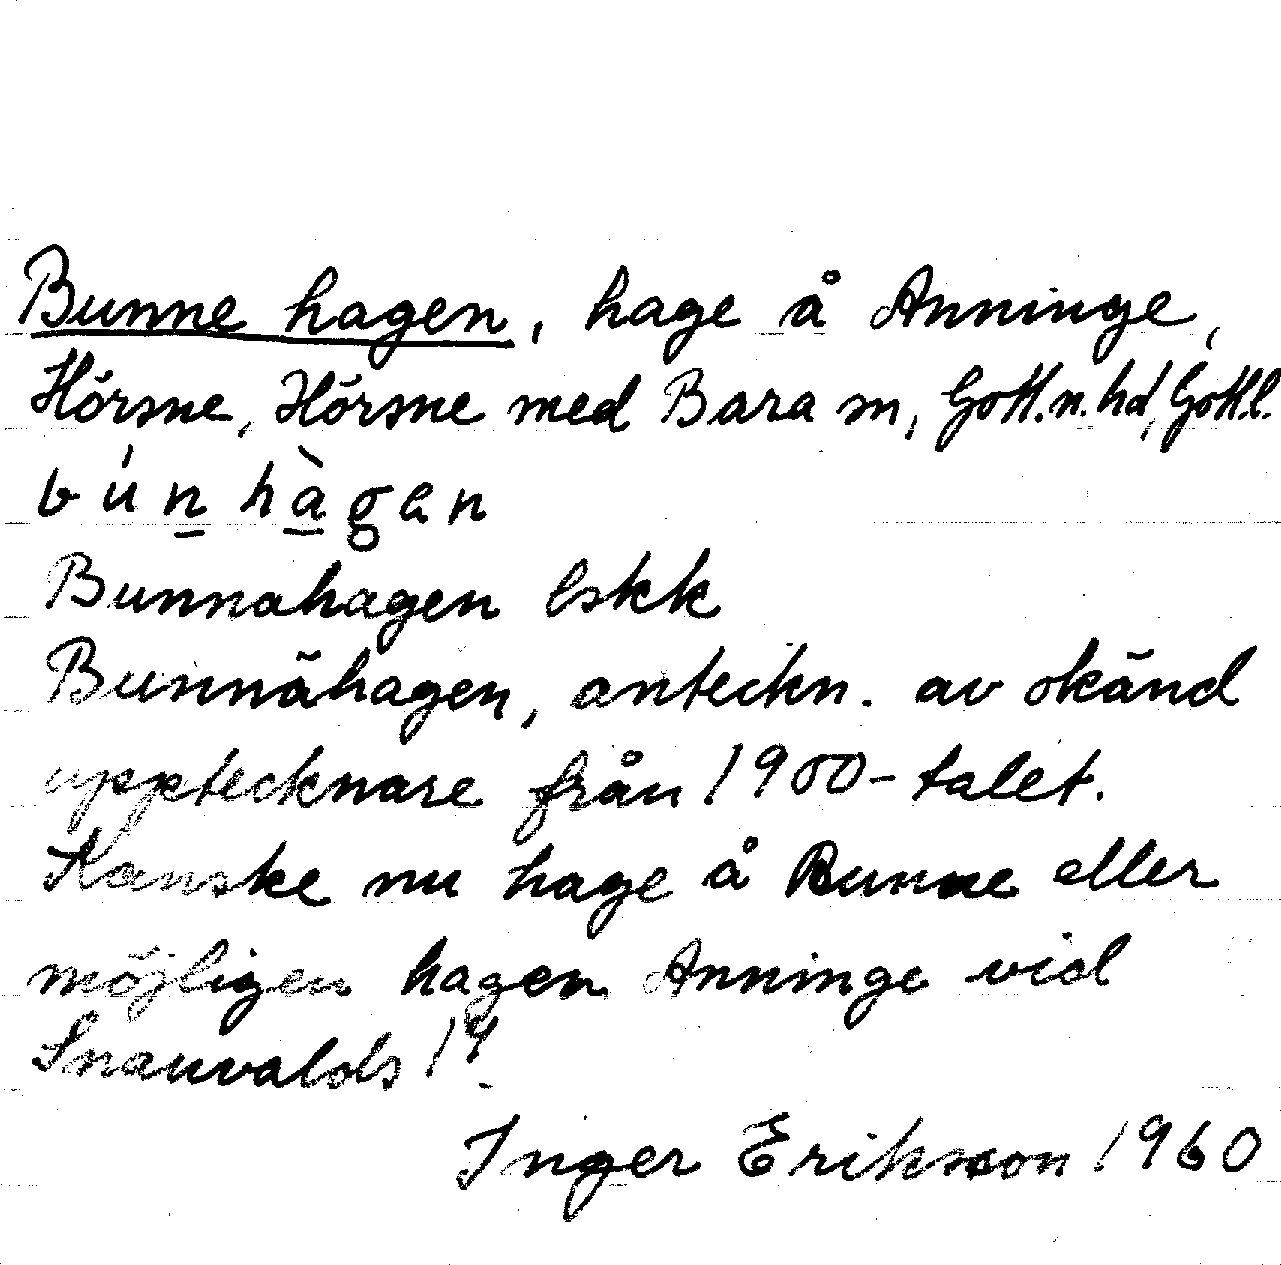 Bunne hagen, hage å Anninge,
Hörsne, Hörsne med Bara sn, Gotl. n. hd, Gotl.
búnhàgen
Bunnahagen Eskk
Bunnähagen, anteckn. av okänd
upptecknare från 1900-talet.
Kanske nu hage å Bunne eller
möjligen hagen Anninge vid
Snauvalds 1
Inger Eriksson 1960